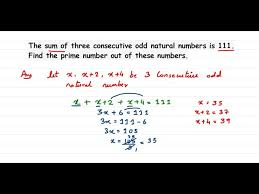 The sum of three consecutive odd natural numbers is 111.
Find the prime number out of these numbers.
Any let x, x+2, x+4 be 3 consecutive odd
natural number
x + x+2 + x+4 = 111
3x + 6 = 111
3x = 111-6
3x = 105
x = 105/3 = 35
x = 35
x+2 = 37
x+4 = 39